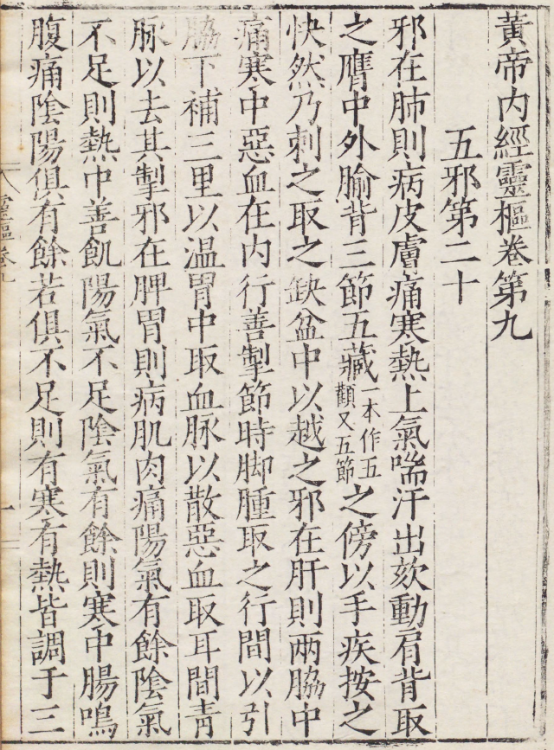 黄帝内經靈樞卷第九
五邪第二十
邪在肺則病皮膚痛寒熱上氣喘汗出欬動肩背取
之膺中外腧背三節五藏一本作五顀又五節之傍以手疾按之
快然乃刺之取之缺盆中以越之邪在肝則兩脇中
痛寒中惡血在内行善掣節時脚腫取之行間以引
脇下補三里以温胃中取血脉以散惡血取耳間青
脉以去其掣邪在脾胃則病肌肉痛陽氣有餘陰氣
不足則熱中善飢陽氣不足陰氣有餘則寒中腸鳴
腹痛陰陽俱有餘若俱不足則有寒有熱皆調于三
靈樞卷九
一